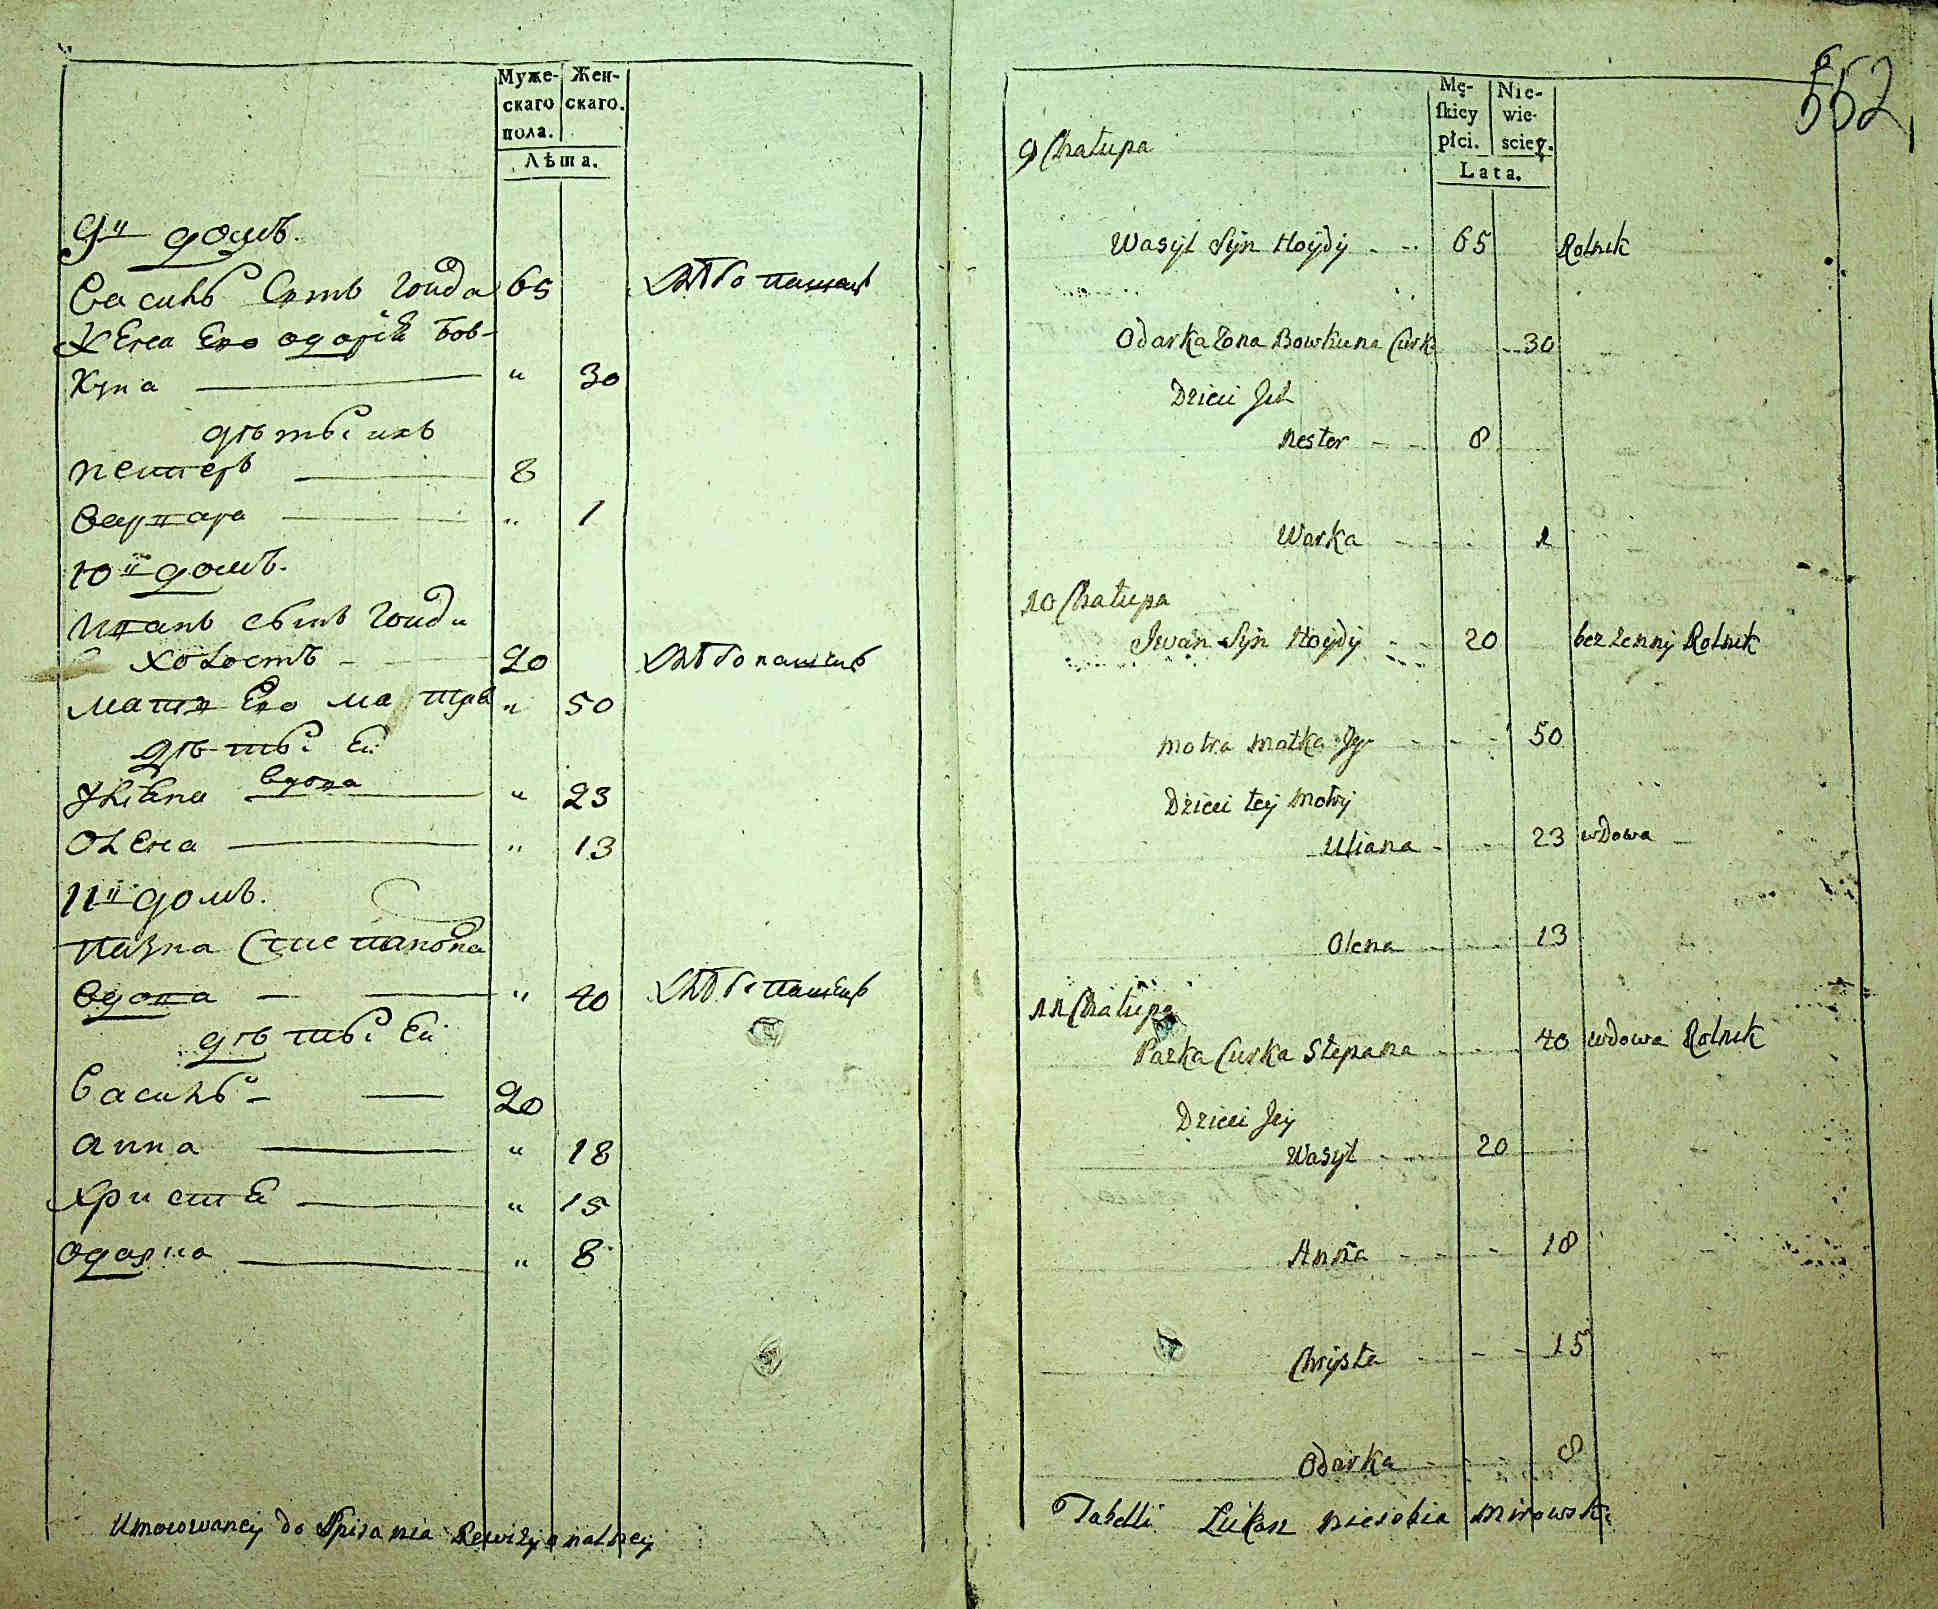 Муже-
скаго
пола.
Жен-
скаго.
Лѣта.
9й домъ.
Василь Сынъ Гойда 65 Хлѣбопашецъ
Жена Его одарка Бов-
куна " 30
дѣты ихъ
Нестеръ 8
Варвара " 1
10й домъ.
Иванъ сынъ Гойди
холостъ 20 Хлѣбопашецъ
мать Его мотра " 50
Дѣты Ей
Улiана вдова " 23
Олена " 13
11й домъ.
Пазка Степанова
вдова " 40 Хлѣбопашецъ
дѣты Ей
Василь 20
Анна " 18
Христя " 15
Одарка " 8
Umocowancy do Spisania Rewizyonalney
552
Mę-
skiey
płci.
Nie-
wie-
sciey.
Lata.
9 Chałupa
Wasyl Syn Hoydy 65 Rolnik
Odarka Żona Bowkuna Curka 30
Dzieci Ich
Nester 8
Warka 1
10 Chałupa
Iwan Syn Hoydy 20 bezżenny Rolnik
Motra Matka Jgo 50
Dzieci tey Motry
Uliana 23 wdowa
Olena 13
11 Chałupa
Pazka Curka Stepana 40 wdowa Rolnik
Dzieci Jey
Wasyl 20
Anna 18
Chrysta 15
Odarka 8
Tabelli Łukasz Mirowski